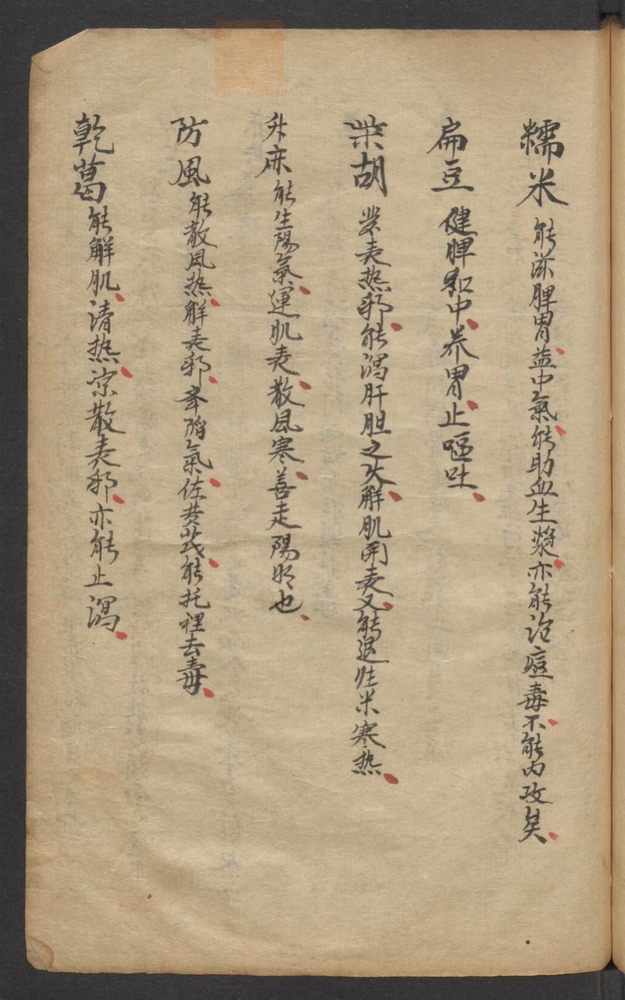 糯米 能滋脾胃益中氣能助血生漿亦能治痘毒不能內攻矣
扁豆 健脾和中养胃止嘔吐
柴胡 發表热邪能瀉肝胆之火觧肌開表又能退往来寒热
升麻 能生陽氣運肌表散風寒善走陽明也
防風 能散風热觧表邪 氣佐黄芪能托裡去毒
乾葛 能觧肌清热凉散表邪亦能止瀉